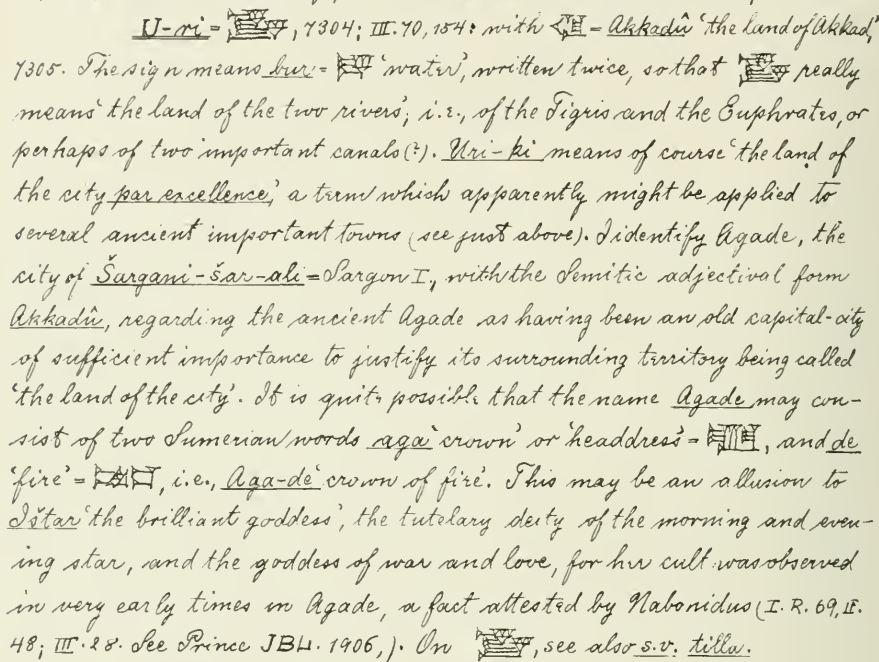 U-ri = , 7304; III. 70, 154: with = Akkadû 'the land of Akkad,'
7305. The sign means bur = 'water', written twice, so that really
means 'the land of the two rivers', i.e., of the Tigris and the Euphrates, or
perhaps of two important canals (?). Uri-ki means of course 'the land of
the city par excellence,' a term which apparently might be applied to
several ancient important towns (see just above). I identify Agade, the
city of Šargani-šar-ali = Sargon I., with the Semitic adjectival form
Akkadû, regarding the ancient Agade as having been an old capital-city
of sufficient importance to justify its surrounding territory being called
'the land of the city'. It is quite possible that the name Agade may con-
sist of two Sumerian words aga 'crown' or 'headdress' = , and de
'fire' = , i.e., Aga-de 'crown of fire'. This may be an allusion to
Ištar 'the brilliant goddess', the tutelary deity of the morning and even-
ing star, and the goddess of war and love, for her cult was observed
in very early times in Agade, a fact attested by Nabonidus (I. R. 69, II.
48; III. 28. See Prince JBL. 1906,). On , see also s.v. tilla.